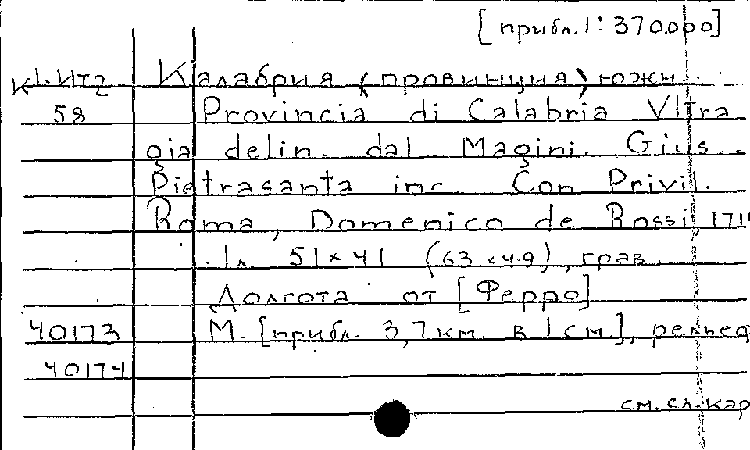 [прибл. 1:370.000]
Кл. Итz Калабрия (провинция) южн.
58 Provincia di Calabria Vltra
gia delin. dal Magini. Gius.
Pietrasanta inc. Con Privil.
Roma, Domenico de Rossi, 1711
1л. 51×41 (63×49), грав.
Долгота от [Ферро]
40173 М. [прибл. 3,7 км. в 1 см.], рельеф
40174
см. сл. кар